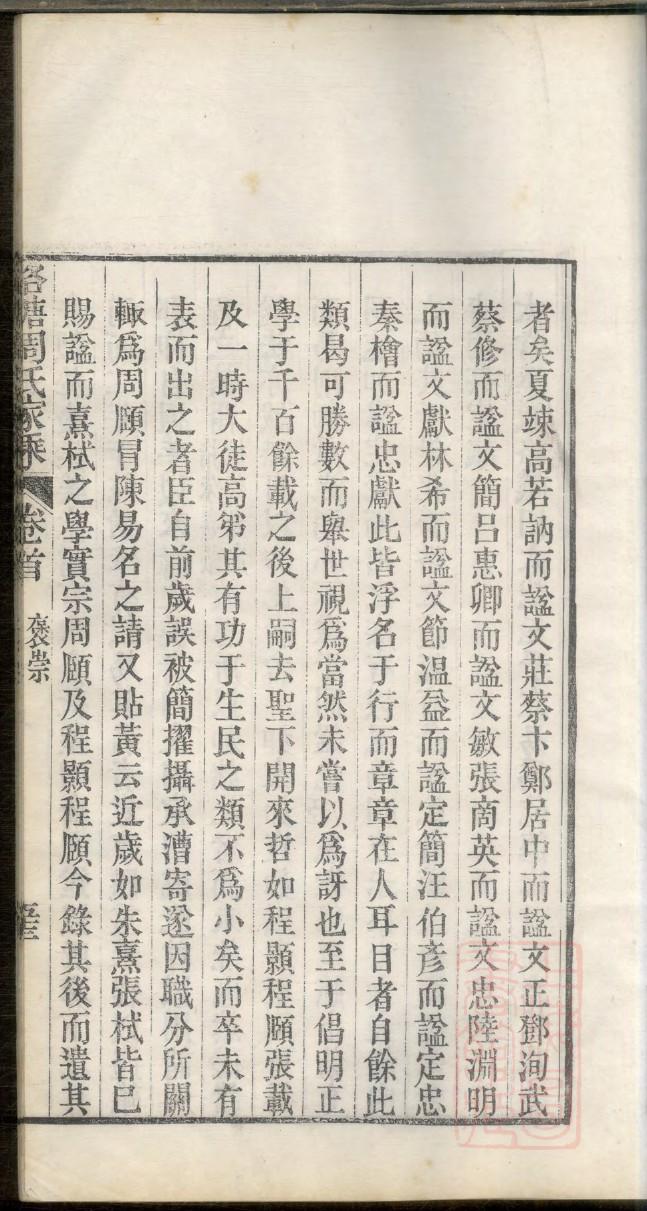 者矣夏竦高若訥而諡文莊蔡卞鄭居中而諡文正鄧洵武
蔡修而諡文簡呂惠卿而諡文敏張商英而諡文忠陸淵明
而諡文獻林希而諡文節溫益而諡定簡汪伯彥而諡定忠
秦檜而諡忠獻此皆浮名于行而章章在人耳目者自餘此
類曷可勝數而舉世視爲當然未嘗以爲訝也至于倡明正
學于千百餘載之後上嗣去聖下開來哲如程顥程頤張載
及一時大徒高第其有功于生民之類不爲小矣而卒未有
表而出之者臣自前歲誤被簡擢攝承漕寄遂因職分所關
輒爲周頤冒陳易名之請又貼黃云近歲如朱熹張栻皆已
賜諡而熹栻之學實宗周頤及程顥程頤今錄其後而遺其
周氏家乘 卷首 褒崇